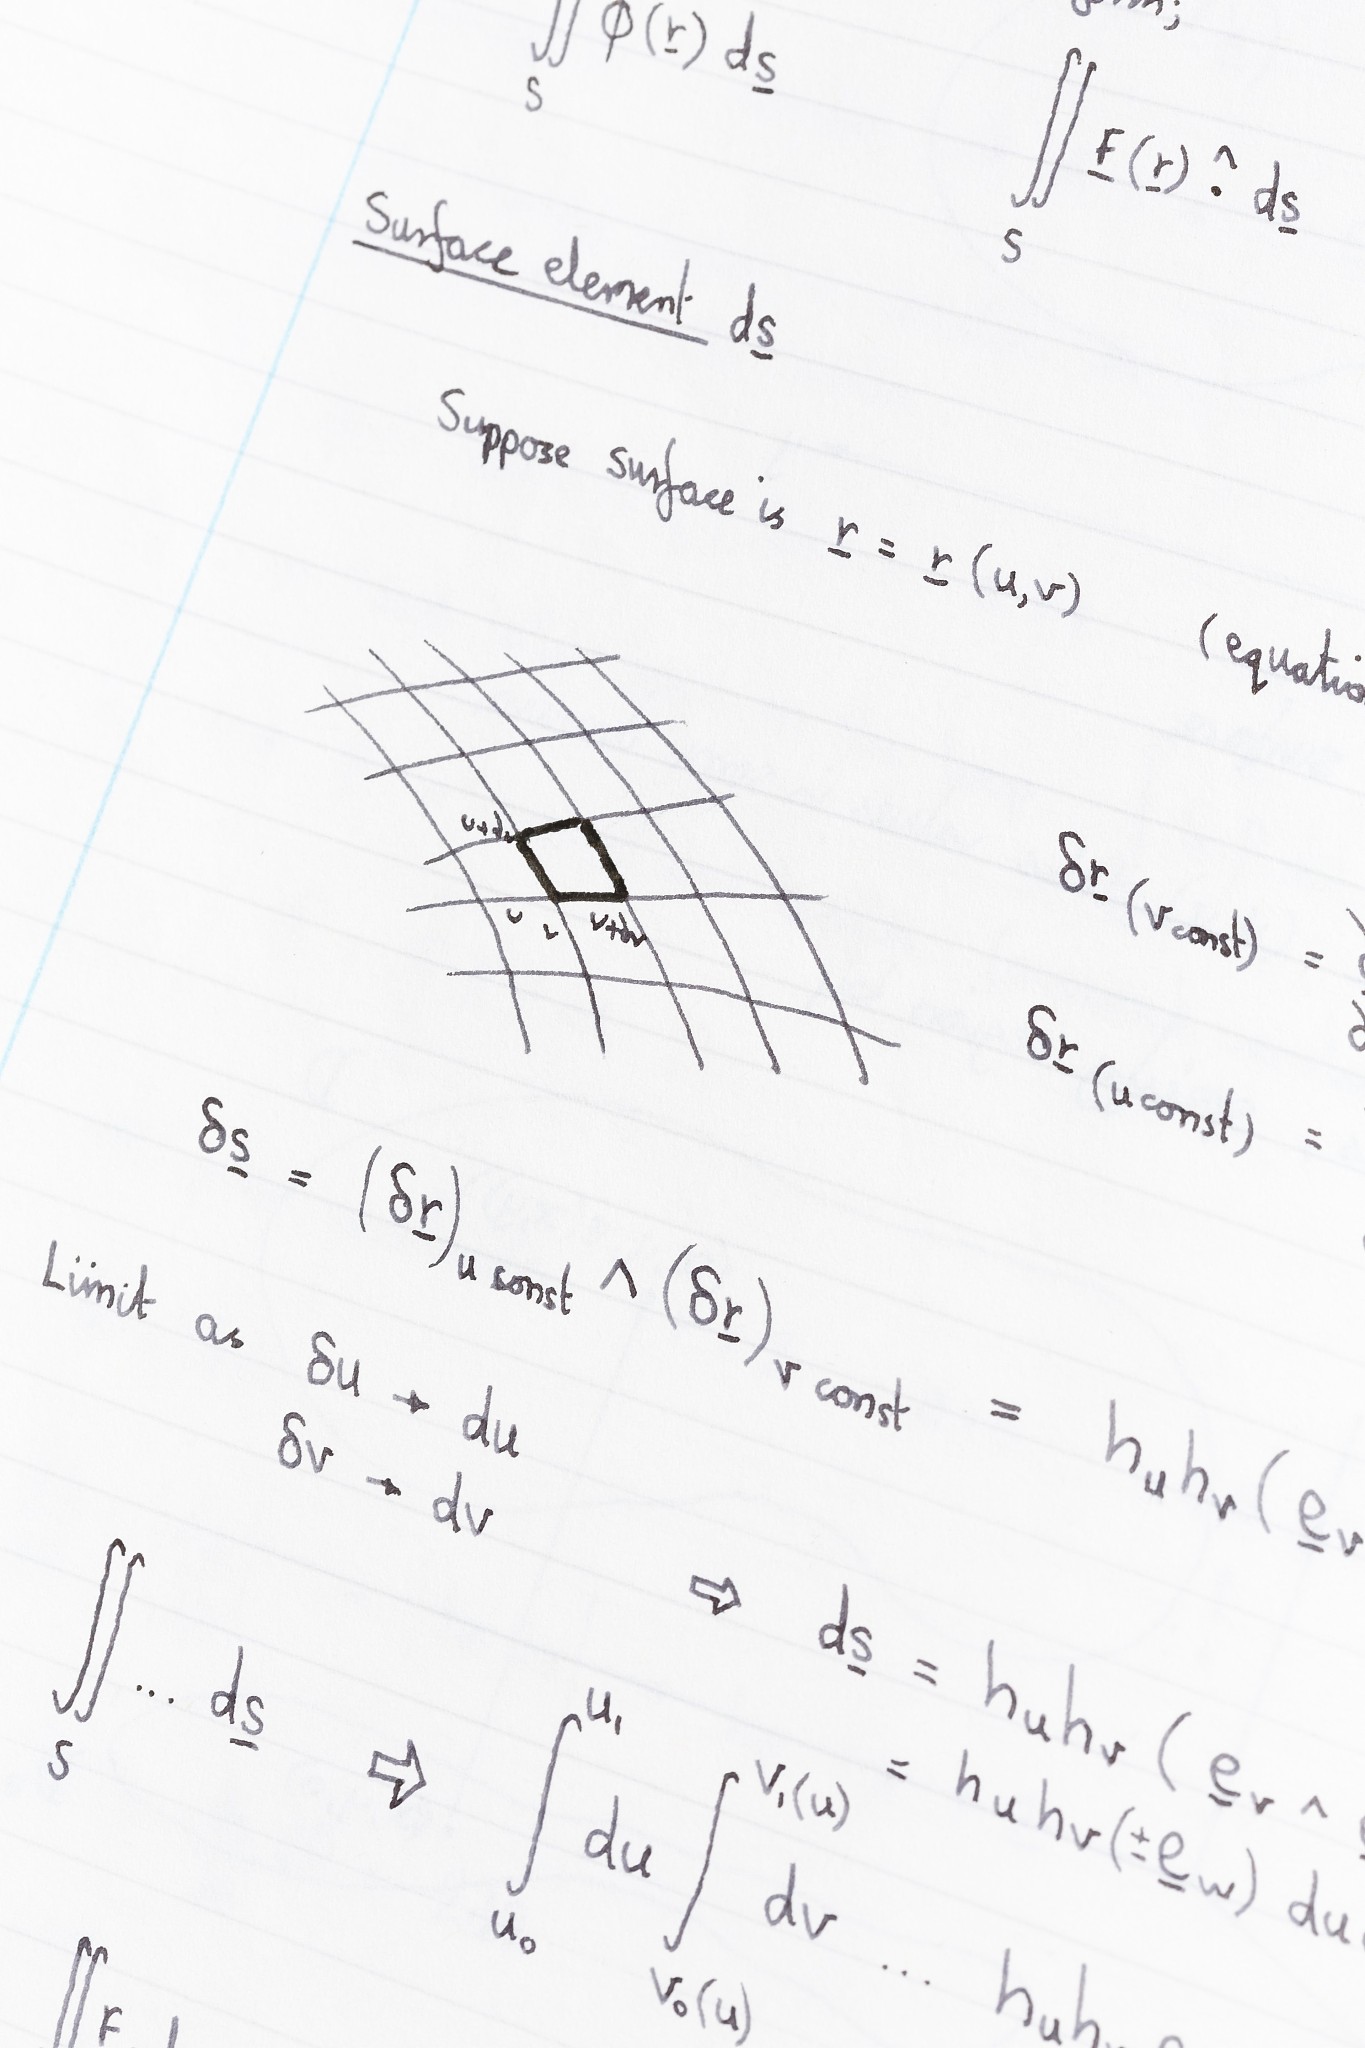 ∬_S φ(r̲) ds̲
∬_S F̲(r̲) ^. ds̲
Surface element ds̲
Suppose surface is r̲ = r̲(u,v) (equatio
u v v+dv
δr̲ (v const) =
δr̲ (u const) =
δs̲ = (δr̲)_u const ∧ (δr̲)_v const = h_u h_v (e̲_v
Limit as δu → du
δv → dv
⇨ ds̲ = h_u h_v (e̲_v ∧
= h_u h_v (± e̲_w) du
∬_S ... ds̲ ⇨ ∫_u₀^u₁ du ∫_v₀(u)^v₁(u) dv ... h_u h_v
∬ F